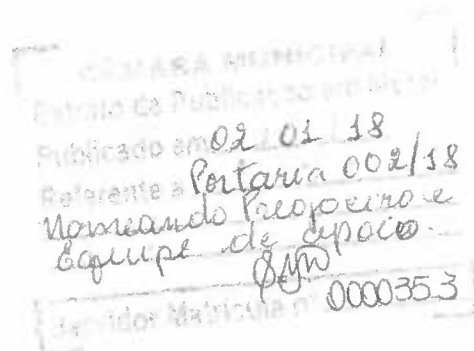 CÂMARA MUNICIPAL
Extrato de Publicado em
Publicado em 02 01 18
Referente a Portaria 002/18
Nomeando Pregoeiro e
Equipe de apoio.
Servidor Matrícula nº 0000353